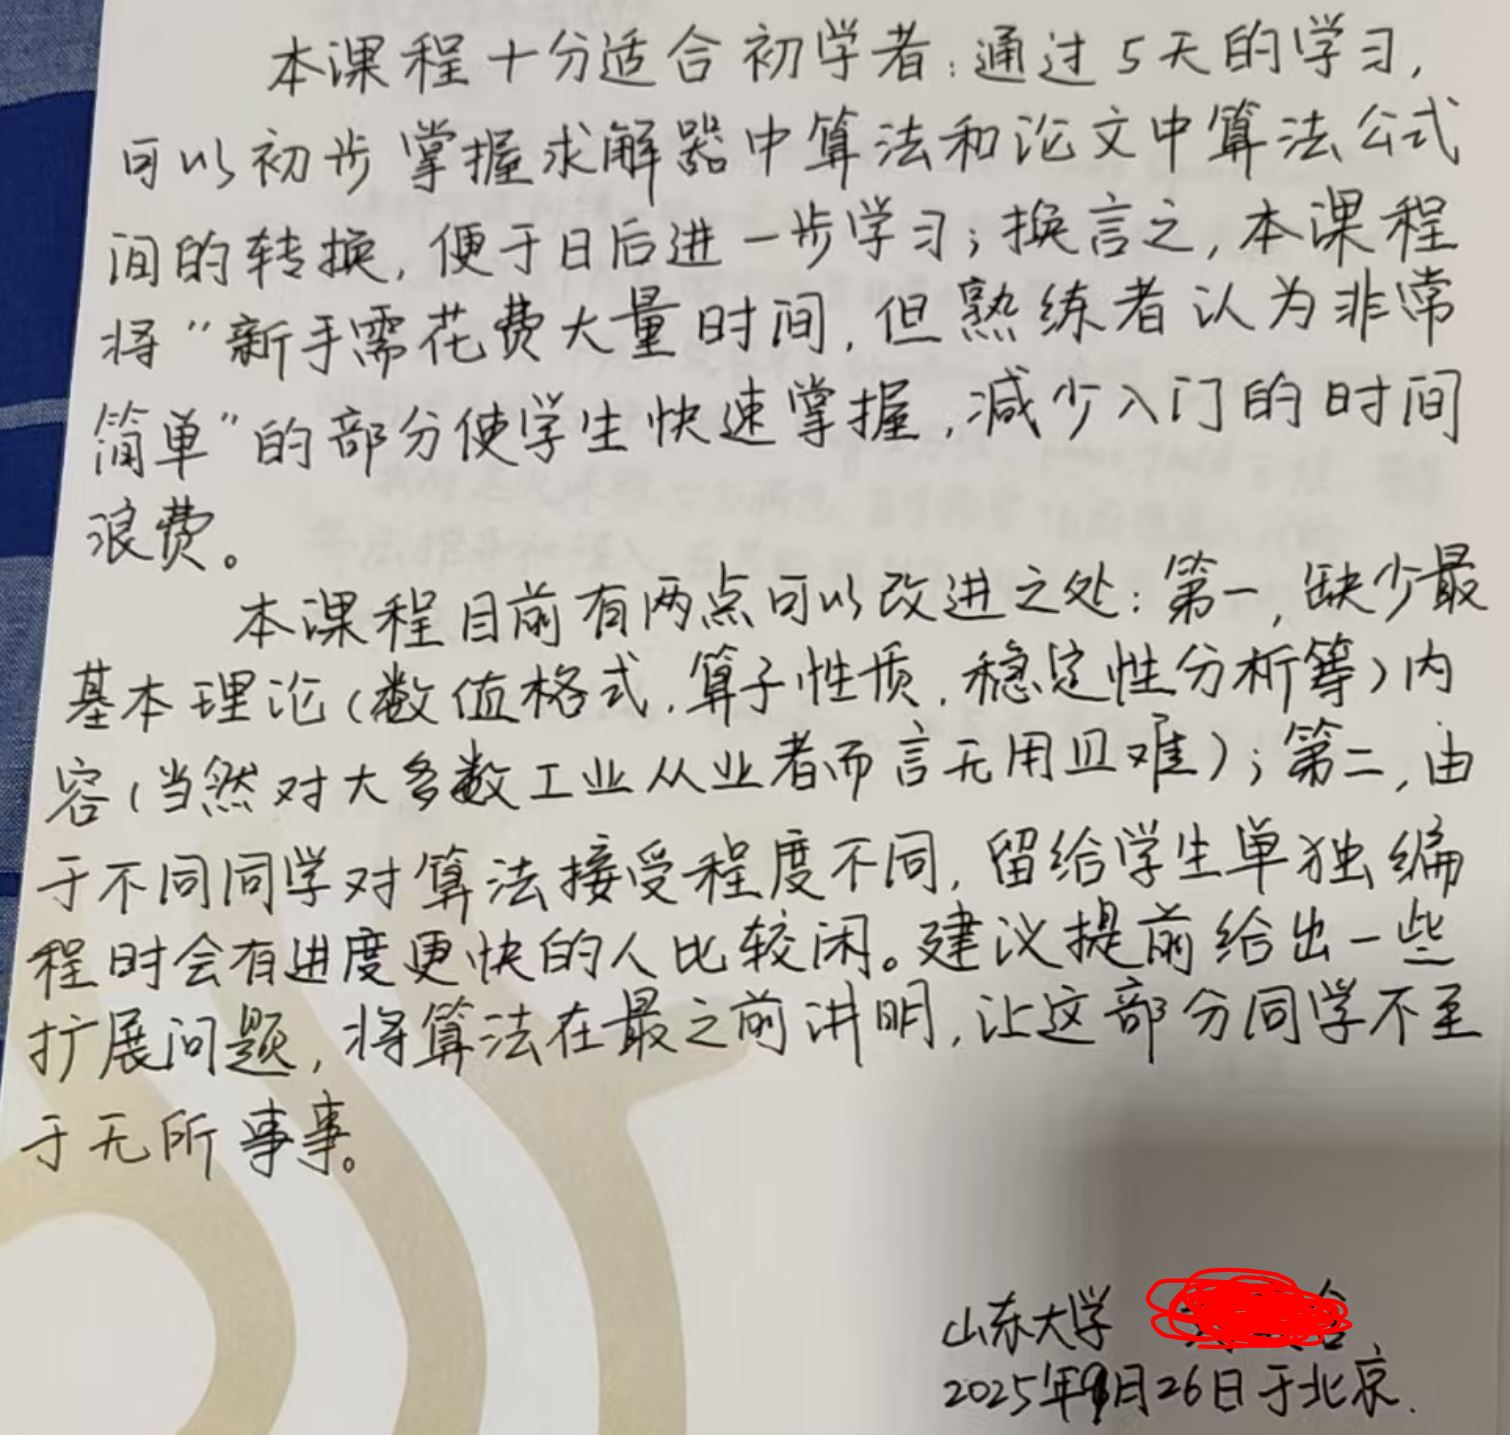 本课程十分适合初学者：通过5天的学习，
可以初步掌握求解器中算法和论文中算法公式
间的转换，便于日后进一步学习；换言之，本课程
将“新手需花费大量时间，但熟练者认为非常
简单”的部分使学生快速掌握，减少入门的时间
浪费。
本课程目前有两点可以改进之处：第一，缺少最
基本理论(数值格式，算子性质，稳定性分析等)内
容(当然对大多数工业从业者而言无用且难)；第二，由
于不同同学对算法接受程度不同，留给学生单独编
程时会有进度更快的人比较闲。建议提前给出一些
扩展问题，将算法在最之前讲明，让这部分同学不至
于无所事事。
山东大学
2025年9月26日于北京.